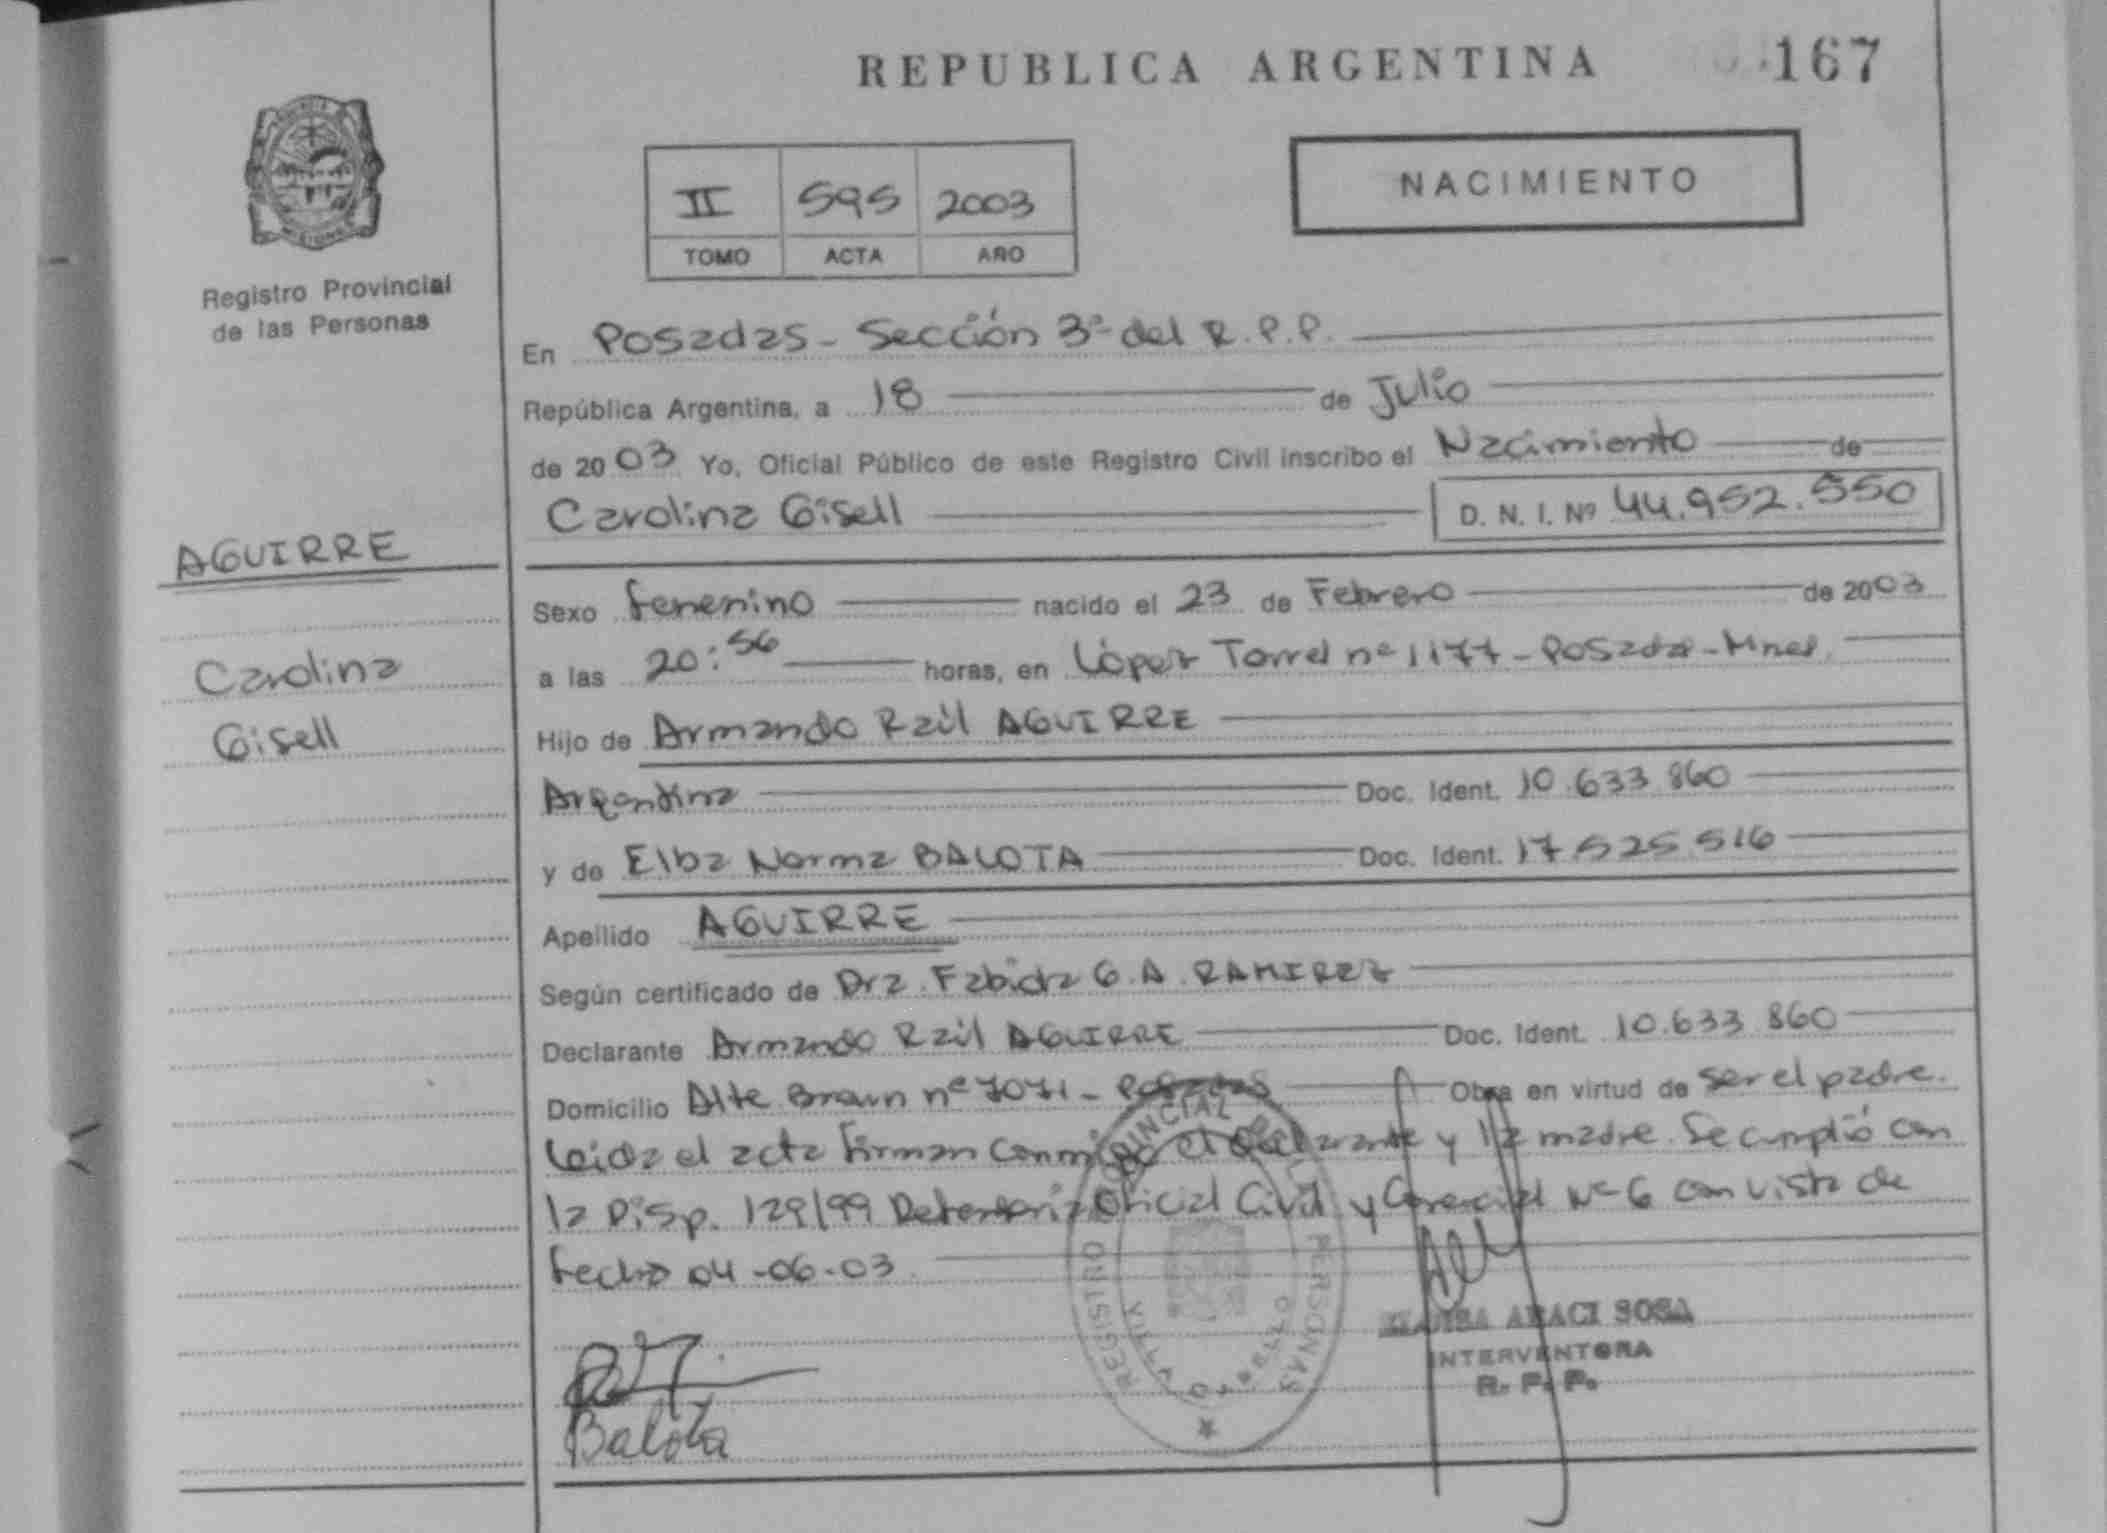 REPUBLICA ARGENTINA
167
PROVINCIA
MISIONES
Registro Provincial
de las Personas
II 595 2003
TOMO ACTA AÑO
NACIMIENTO
En Posadas - Sección 3ª del R.P.P.
República Argentina, a 18 de Julio
de 2003 Yo, Oficial Público de este Registro Civil inscribo el Nacimiento de
Carolina Gisell D. N. I. Nº 44.952.550
AGUIRRE
Carolina
Gisell
Sexo femenino nacido el 23 de Febrero de 2003
a las 20:56 horas, en López Torres nº 1177 - Posadas - Mnes.
Hijo de Armando Raúl AGUIRRE
Argentina Doc. Ident. 10.633.860
y de Elba Norma BALOTA Doc. Ident. 17.525.516
Apellido AGUIRRE
Según certificado de Dra. Fabiola G. A. RAMIREZ
Declarante Armando Raúl AGUIRRE Doc. Ident. 10.633.860
Domicilio Alte Brown nº 7071 - Posadas Obra en virtud de ser el padre.
Leida el acta firman conmigo el declarante y la madre. Se cumplió con
la Disp. 129/99 Defensoria Oficial Civil y Comercial Nº 6 con vista de
fecha 04-06-03.
REGISTRO PROVINCIAL PERSONAS
ARACI SOSA
INTERVENTORA
R. P. P.
Balota